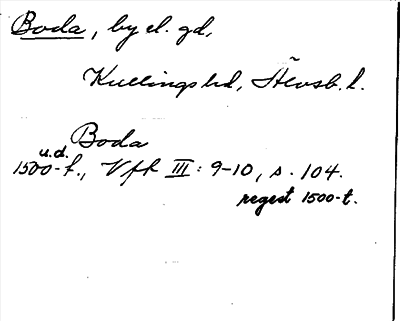 Boda, by el. gd,
Kullings hd, Älvsb. l.
Boda
u.d.
1500-t., Vft III: 9-10, s. 104.
regest 1500-t.